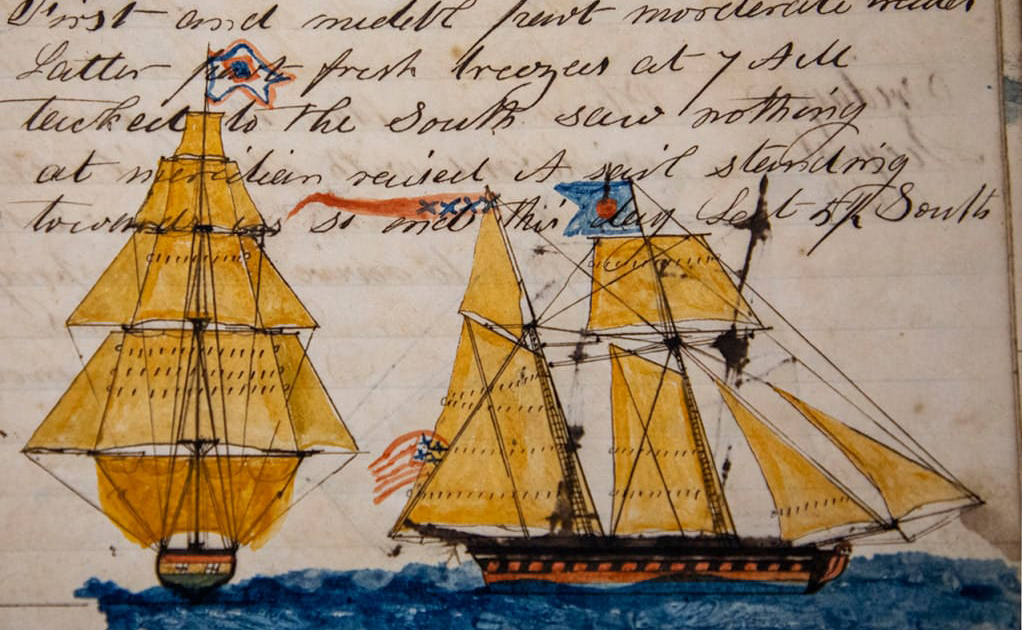 First and meddle part morderate
Latter part fresh breezes at 7 AM
tacked to the South saw nothing
at meridian raised A sail standing
towards us so end this day Lat 5/2 South